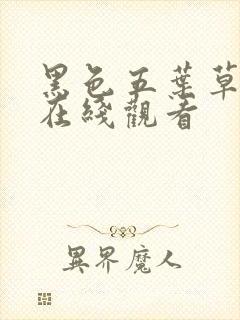 黑色五葉草
在綫觀看
異界魔人